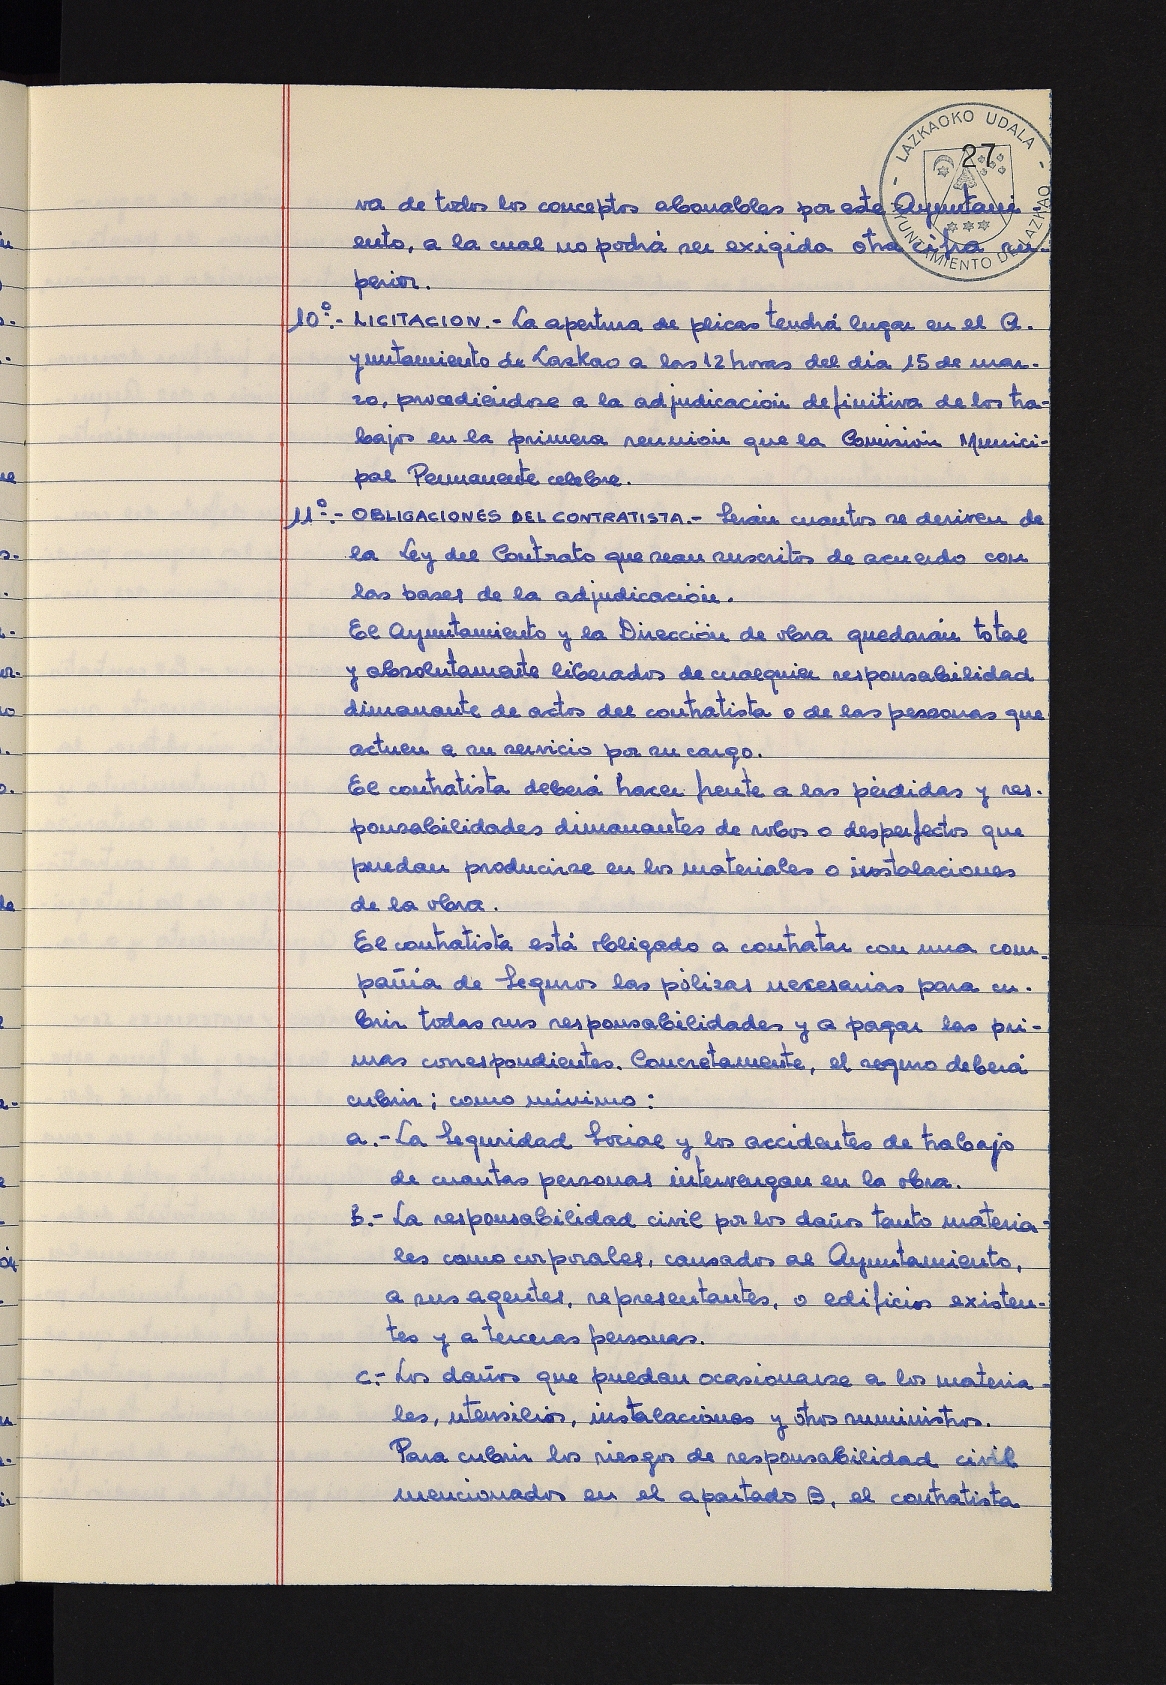 - LAZKAOKO UDALA -
AYUNTAMIENTO DE LAZKAO
27
va de todos los conceptos abonables por este Ayuntami-
ento, a la cual no podrá ser exigida otra cifra su-
perior.
10º.- LICITACION.- La apertura de plicas tendrá lugar en el A-
yuntamiento de Lazkao a las 12 horas del dia 15 de mar-
zo, procediéndose a la adjudicación definitiva de los tra-
bajos en la primera reunión que la Comisión Munici-
pal Permanente celebre.
11º.- OBLIGACIONES DEL CONTRATISTA.- Serán cuantos se deriven de
la Ley del Contrato que sean suscritos de acuerdo con
las bases de la adjudicación.
El Ayuntamiento y la Dirección de obra quedarán total
y absolutamente liberados de cualquier responsabilidad
dimanante de actos del contratista o de las personas que
actuen a su servicio por su cargo.
El contratista deberá hacer frente a las pérdidas y res-
ponsabilidades dimanantes de robos o desperfectos que
puedan producirse en los materiales o instalaciones
de la obra.
El contratista está obligado a contratar con una com-
pañía de Seguros las pólizas necesarias para cu-
brir todas sus responsabilidades y a pagar las pri-
mas correspondientes. Concretamente, el seguro deberá
cubrir; como mínimo:
a.- La Seguridad Social y los accidentes de trabajo
de cuantas personas intervengan en la obra.
B.- La responsabilidad civil por los daños tanto materia-
les como corporales, causados al Ayuntamiento,
a sus agentes, representantes, o edificios existen-
tes y a terceras personas.
c.- Los daños que puedan ocasionarse a los materia-
les, utensilios, instalaciones y otros suministros.
Para cubrir los riesgos de responsabilidad civil
mencionados en el apartado B, el contratista